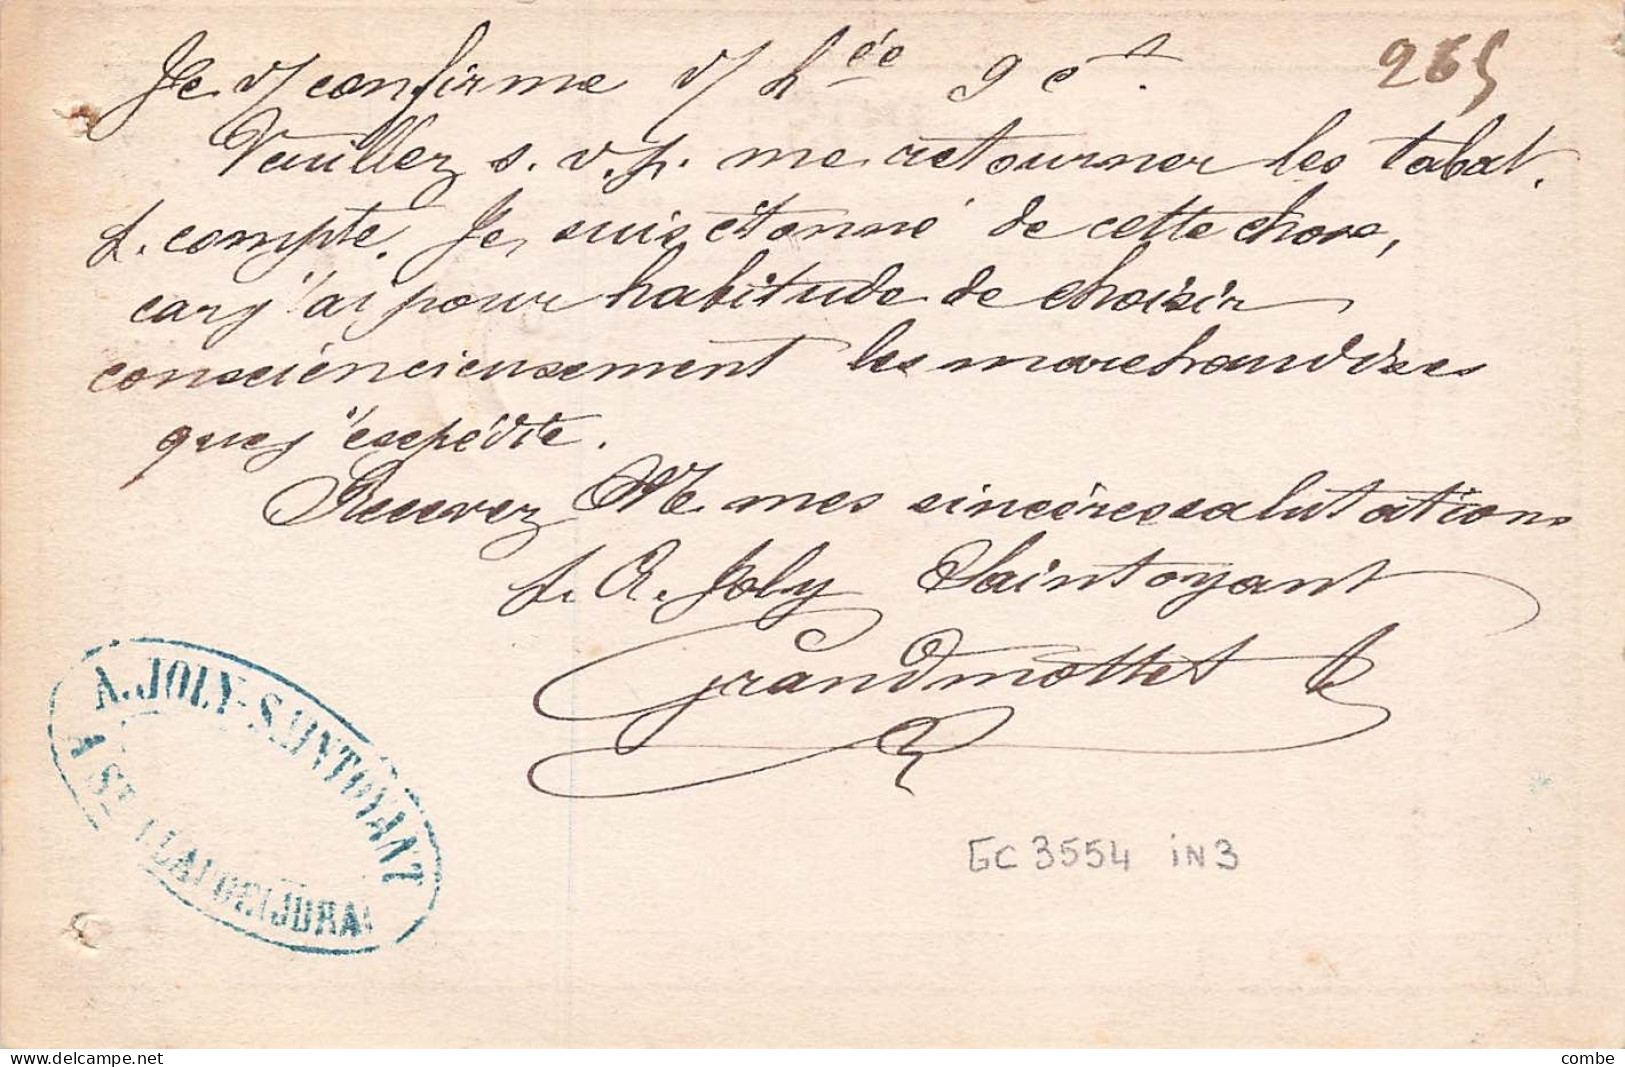 265
Je v/ confirme v/ h ée 9 ct.
Veuillez s. v. p. me retourner les tabat.
p. compte. Je suis étonné de cette chose,
car j'ai pour habitude de choisir
consciencieusement les marchandises
que j'expédie.
Recevez Mr mes sincères salutations
p. A. Joly Saintoyant
Grandmottet
A. JOLY-SAINTOYANT
A ST CLAUDE (JURA)
GC 3554 iN3
combe
delcampe.net